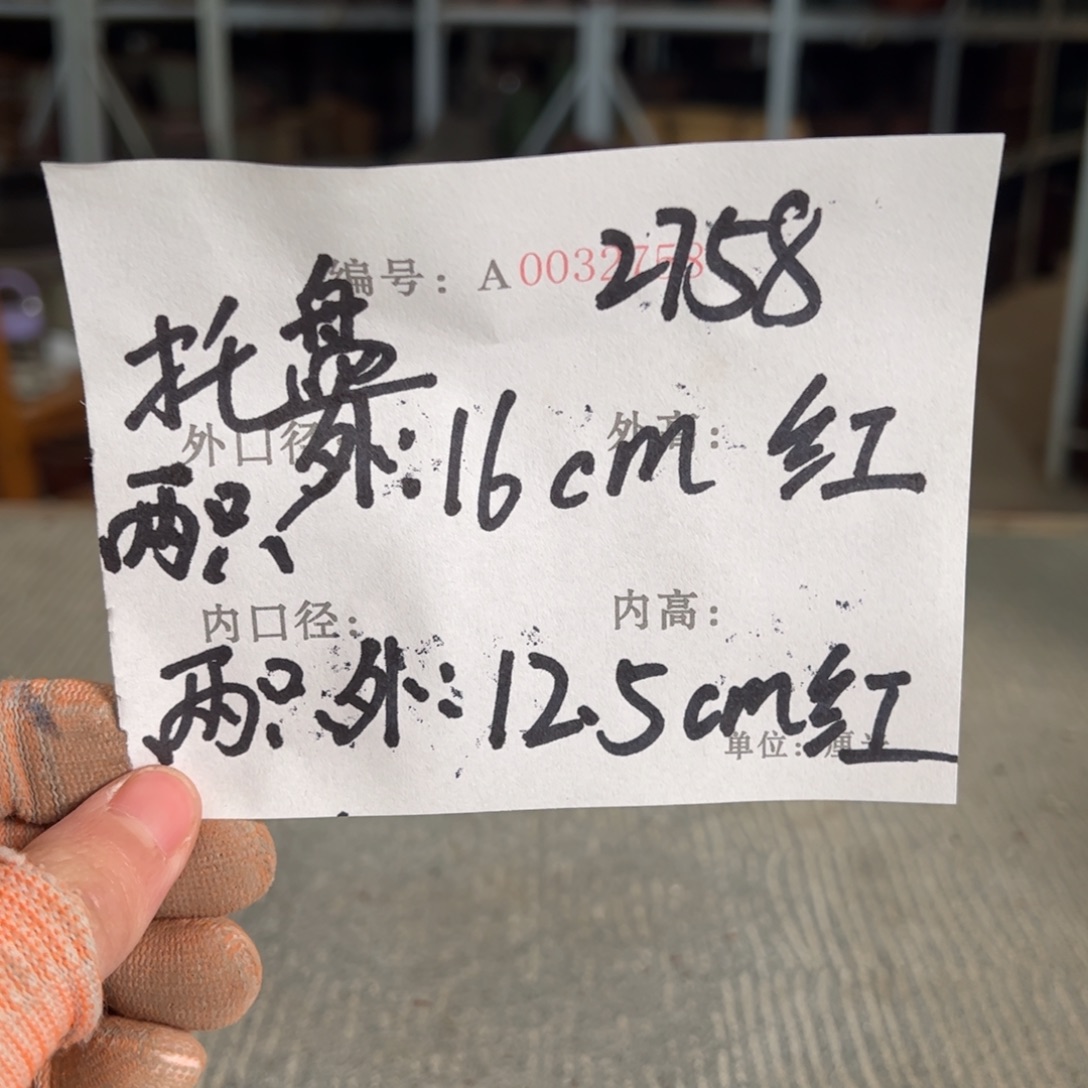 编号：A0032758 2758
托盘
外口径 外：16cm 外高： 红
两只
内口径： 内高：
两只外：12.5cm红
单位：厘米